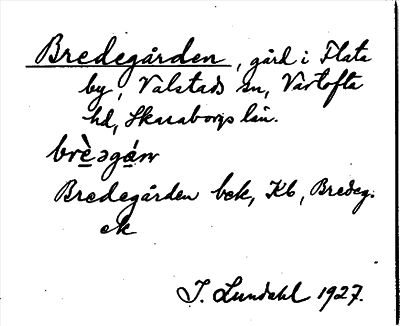 Bredegården, gård i Flata
by, Valstads sn, Vartofta
hd, Skaraborgs län.
brè̱əgá̱ṟn
Bredegården bek, Kb, Bredeg.
ek
I. Lundahl 1927.